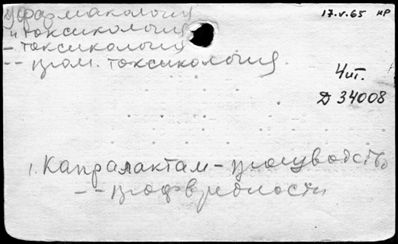 Фармакология 17.V.65 нр
и токсикология
– токсикология
– – пром. токсикология.
Чит.
Д 34008
1. Капралактам – производство
– – профвредности